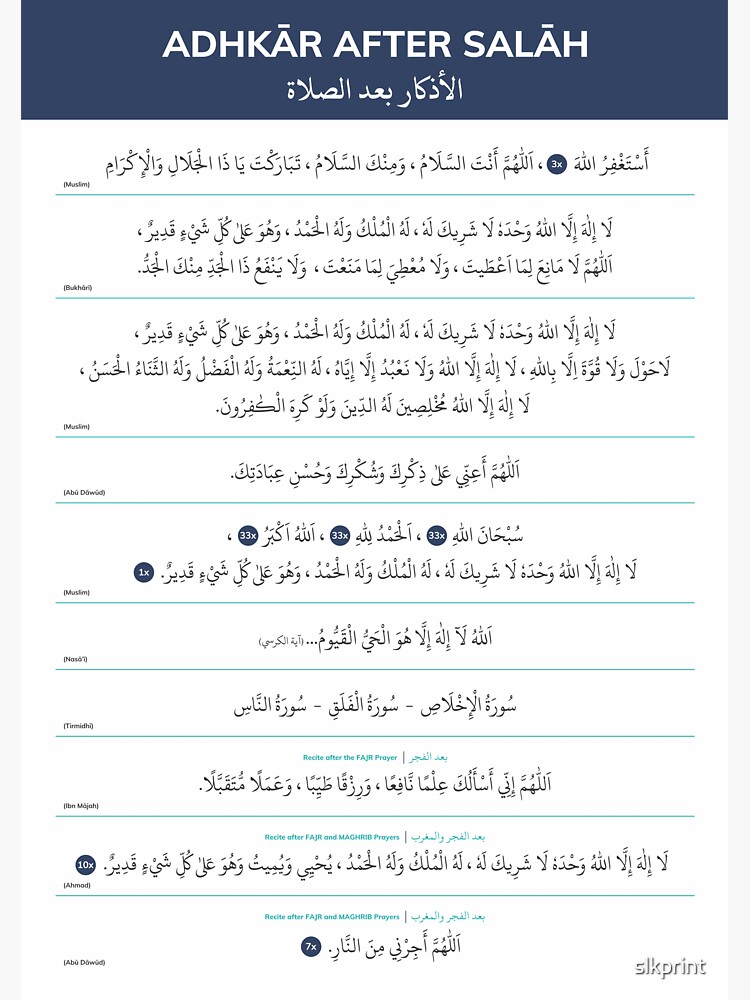 ADHKĀR AFTER SALĀH
الأذكار بعد الصلاة
أَسْتَغْفِرُ اللهَ 3x ، اَللّٰهُمَّ أَنْتَ السَّلَامُ ، وَمِنْكَ السَّلَامُ ، تَبَارَكْتَ يَا ذَا الْجَلَالِ وَالْإِكْرَامِ
(Muslim)
لَا إِلٰهَ إِلَّا اللهُ وَحْدَهٗ لَا شَرِيكَ لَهٗ ، لَهُ الْمُلْكُ وَلَهُ الْحَمْدُ ، وَهُوَ عَلىٰ كُلِّ شَيْءٍ قَدِيرٌ ،
اَللّٰهُمَّ لَا مَانِعَ لِمَا اَعْطَيتَ ، وَلَا مُعْطِيَ لِمَا مَنَعْتَ ، وَلَا يَنْفَعُ ذَا الْجَدِّ مِنْكَ الْجَدُّ.
(Bukhāri)
لَا إِلٰهَ إِلَّا اللهُ وَحْدَهٗ لَا شَرِيكَ لَهٗ ، لَهُ الْمُلْكُ وَلَهُ الْحَمْدُ ، وَهُوَ عَلىٰ كُلِّ شَيْءٍ قَدِيرٌ ،
لَاحَوْلَ وَلَا قُوَّةَ اِلَّا بِاللهِ ، لَا إِلٰهَ إِلَّا اللهُ وَلَا نَعْبُدُ إِلَّا إِيَّاهُ ، لَهُ النِّعْمَةُ وَلَهُ الْفَضْلُ وَلَهُ الثَّنَاءُ الْحَسَنُ ،
لَا إِلٰهَ إِلَّا اللهُ مُخْلِصِينَ لَهُ الدِّينَ وَلَوْ كَرِهَ الْكٰفِرُونَ.
(Muslim)
اَللّٰهُمَّ أَعِنِّي عَلىٰ ذِكْرِكَ وَشُكْرِكَ وَحُسْنِ عِبَادَتِكَ.
(Abū Dāwūd)
سُبْحَانَ اللهِ 33x ، اَلْحَمْدُ لِلّٰهِ 33x ، اَللهُ اَكْبَرُ 33x ،
لَا إِلٰهَ إِلَّا اللهُ وَحْدَهٗ لَا شَرِيكَ لَهٗ ، لَهُ الْمُلْكُ وَلَهُ الْحَمْدُ ، وَهُوَ عَلىٰ كُلِّ شَيْءٍ قَدِيرٌ. 1x
(Muslim)
اَللهُ لَآ إِلٰهَ إِلَّا هُوَ الْحَيُّ الْقَيُّومُ... (آية الكرسي)
(Nasā'i)
سُورَةُ الْإِخْلَاصِ - سُورَةُ الْفَلَقِ - سُورَةُ النَّاسِ
(Tirmidhī)
Recite after the FAJR Prayer | بعد الفجر
اَللّٰهُمَّ إِنِّي أَسْأَلُكَ عِلْمًا نَّافِعًا ، وَرِزْقًا طَيِّبًا ، وَعَمَلًا مُّتَقَبَّلًا.
(Ibn Mājah)
Recite after FAJR and MAGHRIB Prayers | بعد الفجر والمغرب
لَا إِلٰهَ إِلَّا اللهُ وَحْدَهٗ لَا شَرِيكَ لَهٗ ، لَهُ الْمُلْكُ وَلَهُ الْحَمْدُ ، يُحْيِي وَيُمِيتُ وَهُوَ عَلىٰ كُلِّ شَيْءٍ قَدِيرٌ. 10x
(Ahmad)
Recite after FAJR and MAGHRIB Prayers | بعد الفجر والمغرب
اَللّٰهُمَّ أَجِرْنِي مِنَ النَّارِ. 7x
(Abū Dāwūd)
slkprint